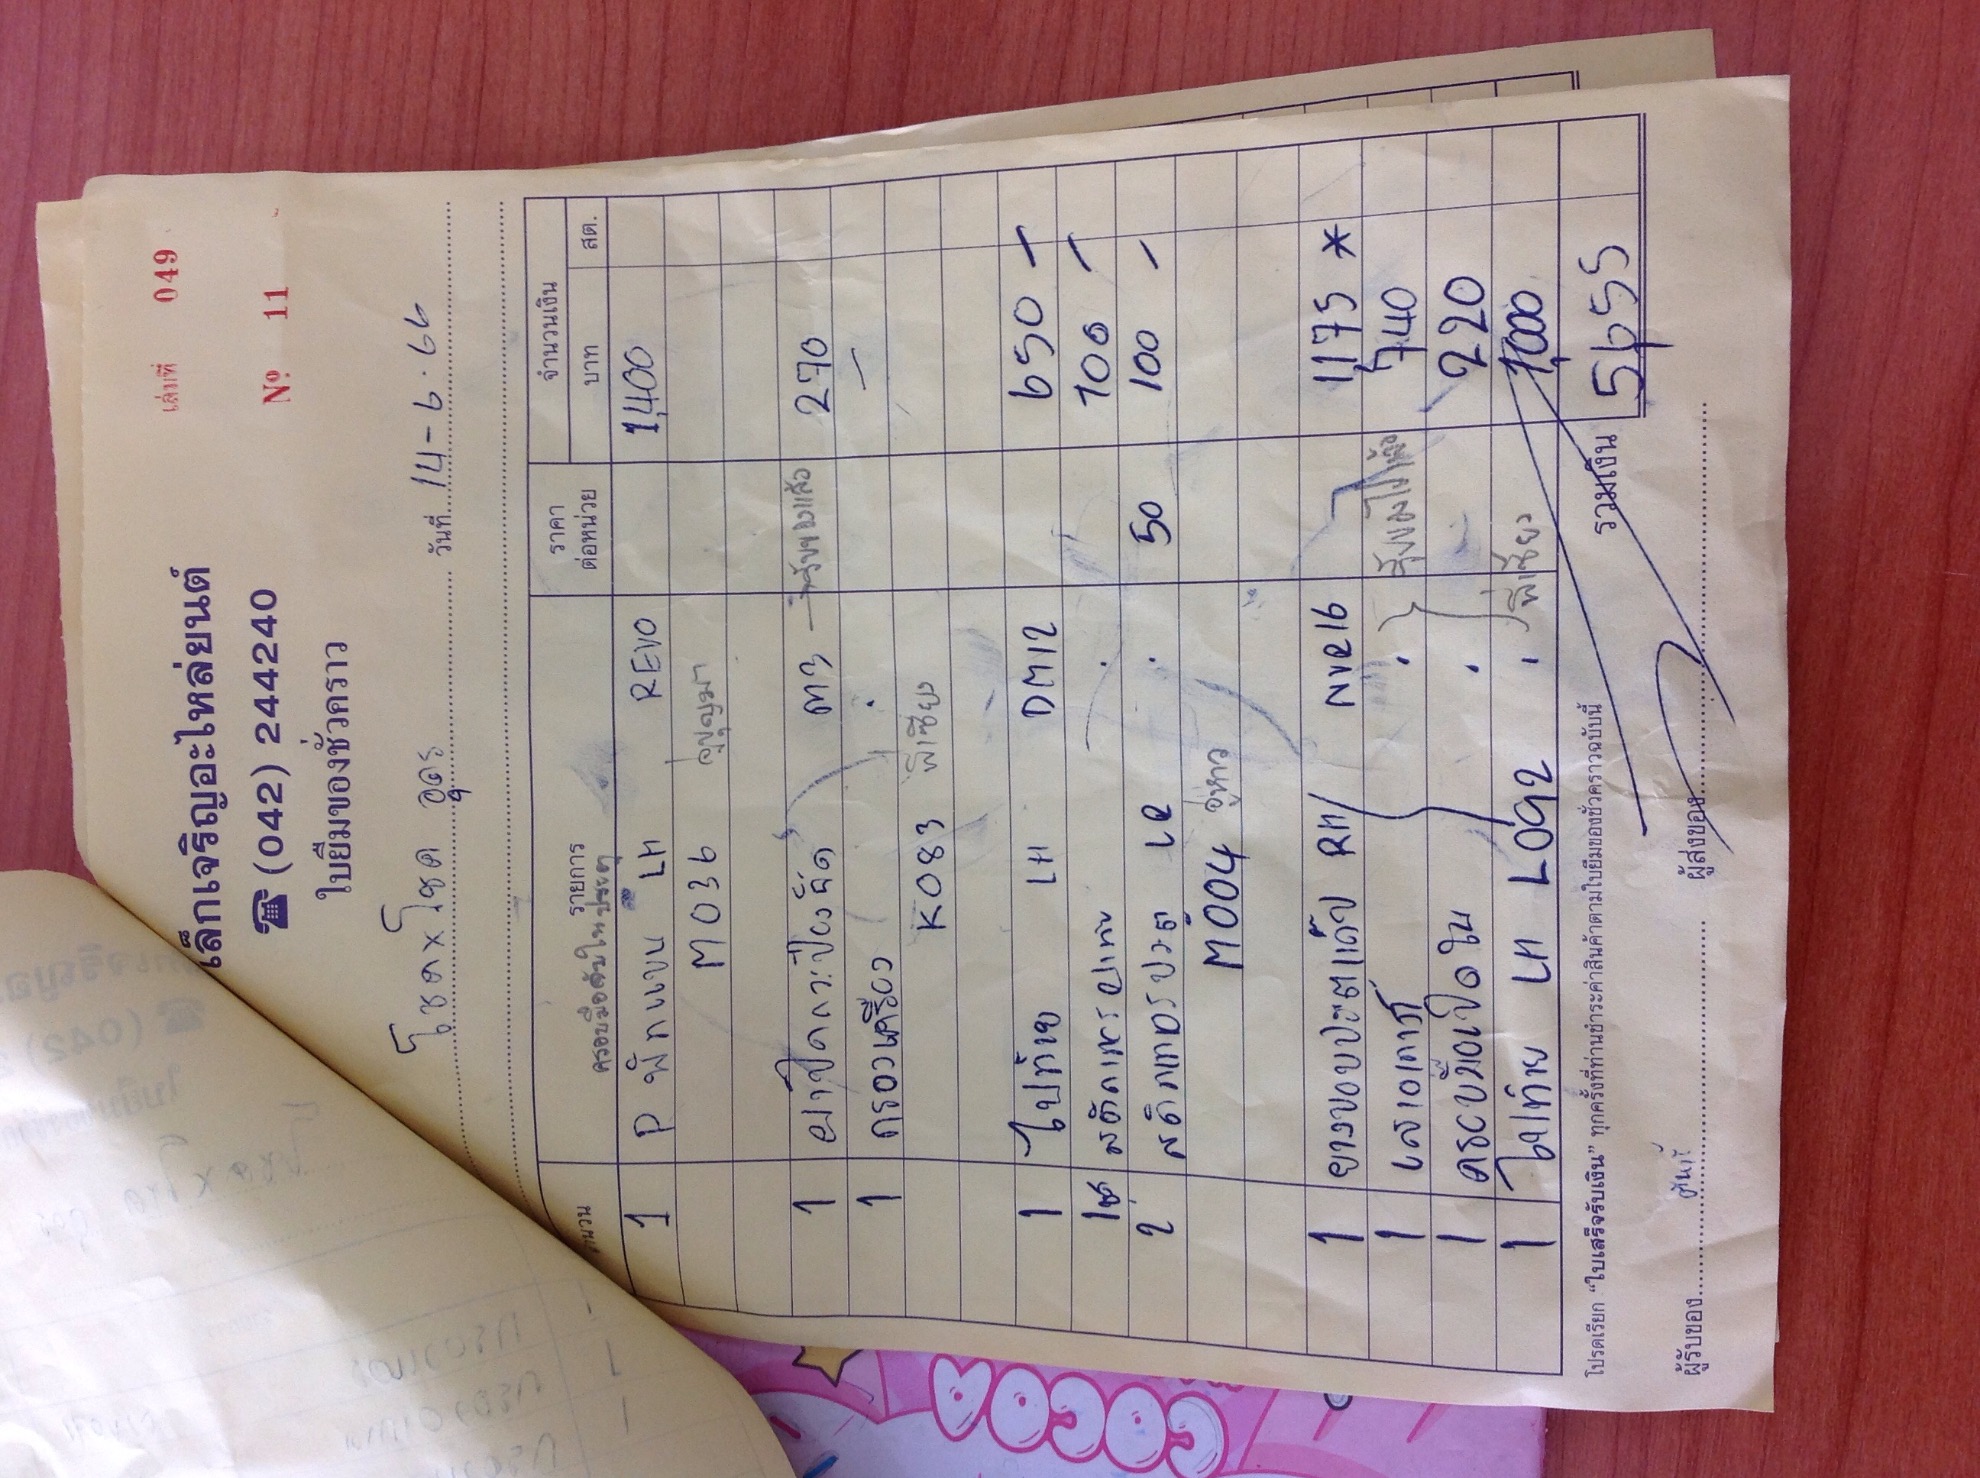 เล่มที่ 049
เล็กเจริญอะไหล่ยนต์
☎ (042) 244240
№ 11
ใบยืมของชั่วคราว
โชคxโชค อุดร วันที่ 14-6-66
รายการ ราคาต่อหน่วย จำนวนเงิน
บาท สต.
ครอบมือดับในประตู
1 P พักแขน LH REVO 1,400
M036
1 ฝาปิดกระป๋องฉีด ตาว รับของแล้ว 270
1 กรองเครื่อง " —
K083 พี่เซียง
1 ไฟท้าย LH DM12 650 -
1ชุด สติกเกอร์ฝาท้าย " 100 -
2 สติกเกอร์ประตู LR " 50 100 -
M004
1 ยางขอบประตูแค๊ป RH NVR16 1,175 *
1 เสาอากาศ " 740
1 ครอบมือเปิดใน " 220
1 ไฟท้าย LH L092 " พี่เซียง 1,000
โปรดเรียก “ใบเสร็จรับเงิน” ทุกครั้งที่ท่านชำระค่าสินค้าตามใบยืมของชั่วคราวฉบับนี้
รวมเงิน 5655
ผู้รับของ
ผู้ส่งของ
COCOA